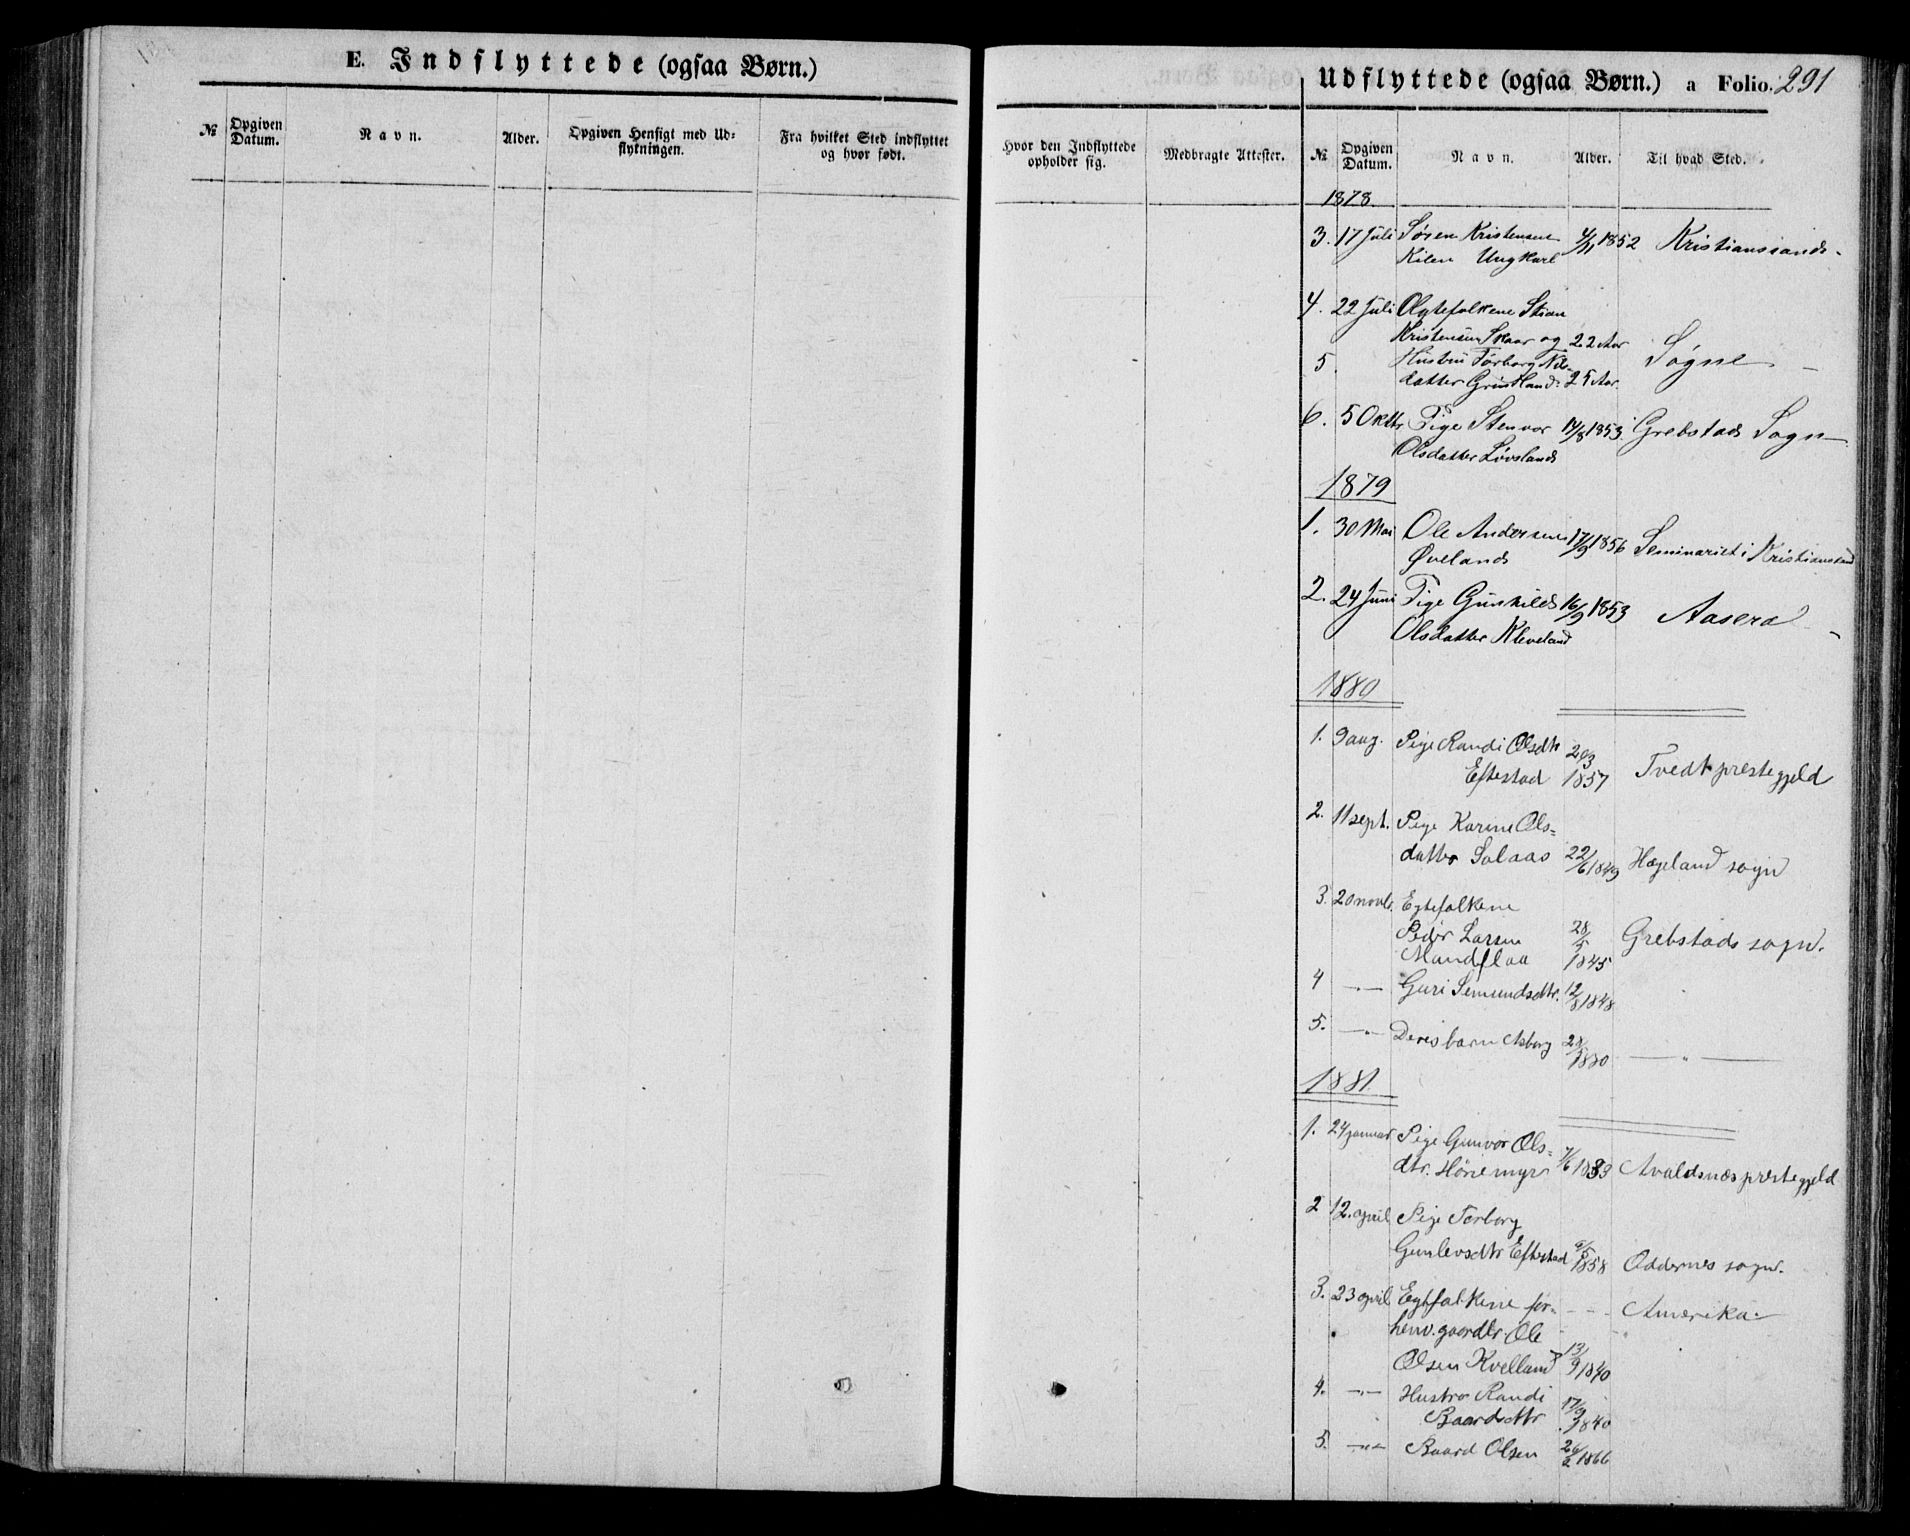 E. Indflyttede (ogsaa Børn.)
№ Opgiven Datum. Navn. Alder. Opgiven Hensigt med Udflytningen. Fra hvilket Sted indflyttet og hvor født.
Hvor den Indflyttede opholder sig. Medbragte Attester.
Udflyttede (ogsaa Børn.) a Folio. 291
№ Opgiven Datum. Navn. Alder. Til hvad Sted.
1878.
3. 17 Juli Søren Kristensen 4/11 1852 Kristianssands.
Kilen Ungkarl
4. 22 Juli Ægtefolkene Stian
Kristensen Skaar og 22 Aar
5. Hustru Torborg Nils- Søgne
datter Grundland 25 Aar.
6. 5 Oktbr. Pige Stenvor 14/8 1853. Grebstads Sogn
Olsdatter Løvslands
1879
1. 30 Mai Ole Andersen 17/9 1856 Seminariet i Kristianssand
Øvelands
2. 24 Juni Pige Gunhild 16/9 1853 Aaseral
Olsdatter Kleveland
1880
1. 9 aug. Pige Randi Olsdtr 20/3
Eftestad 1857 Tvedt prestegjeld
2. 11 sept. Pige Karine Ols=
datter Solaas 22/6 1849 Hægeland sogn
3. 20 novbr. Egtefolkene
Peder Larsen 28/5 Grebstads sogn.
Mandflaa 1845
4 —"— Guri Semundsdtr. 12/8 1848 "
5. —"— Deres barn Asborg 28/ 1880 — " —
1881.
1. 24 januar Pige Gunvor Ols=
dtr. Hønemyr 7/6 1833 Avaldsnæs prestegjeld
2 12. april Pige Torborg
Gunlevsdtr Eftestad 9/5 1858 Oddernes sogn.
3. 23 april Egtefolkene for= - - - Amerika
henv. gaardbr. Ole "
Olsen Kvelland 13/9 1840
4. —"— Hustro Randi 17/9
Baardsdtr 1840
5. —"— Baard Olsen 26/2 1866